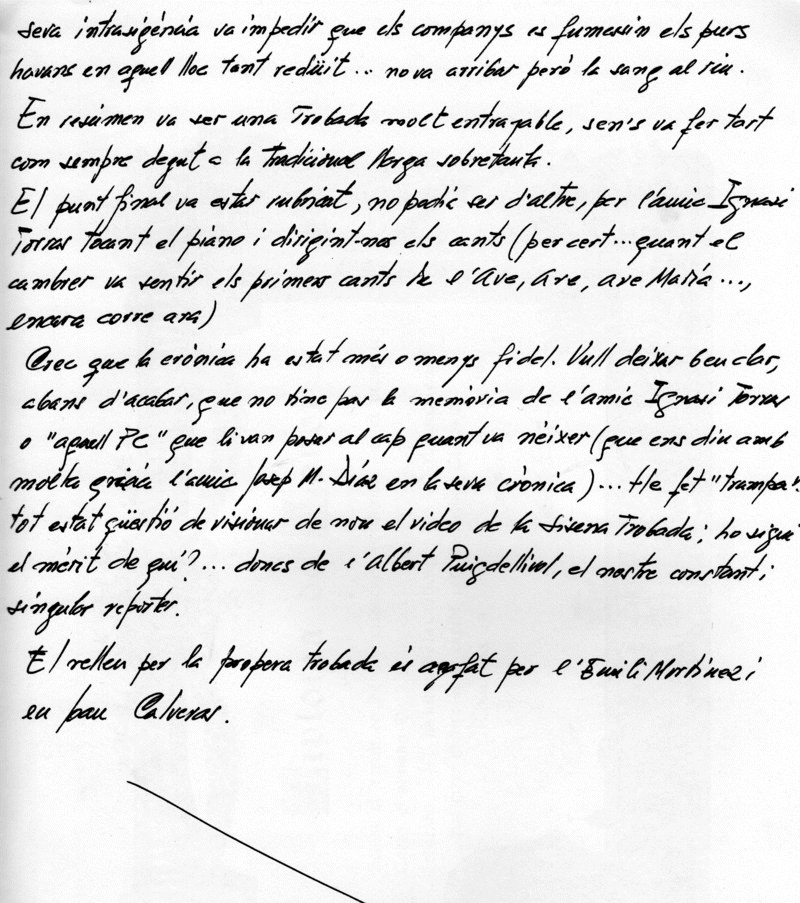 seva intrasigéncia va impedir que els companys es fumessin els purs
havans en aquell lloc tant redüit... no va arribar peró la sang al riu.
En resúmen va ser una Trobada molt entrayable, sen's va fer tart
com sempre degut a la tradicional llarga sobretaula.
El punt final va estar rubricat, no podía ser d'altre, per l'amic Ignasi
Torras tocant el piano i dirigint-nos els cants (per cert...quant el
cambrer va sentir els primers cants de l'Ave, Ave, ave María...,
encara corre ara)
Crec que la crónica ha estat més o menys fidel. Vull deixar ben clar,
abans d'acabar, que no tinc pas la memória de l'amic Ignasi Torras
o "aquell PC" que li van posar al cap quant va néixer (que ens diu amb
molta grácia l'amic Josep M. Díaz en la seva crónica)... He fet "trampa":
tot estat qüestió de visionar de nou el video de la Sisena Trobada; ho sigui
el mérit de qui?... doncs de l'Albert Puigdellívol, el nostre constant i
singular reporter.
El relleu per la propera trobada és agafat per l'Emili Martínez i
en pau Calveras.